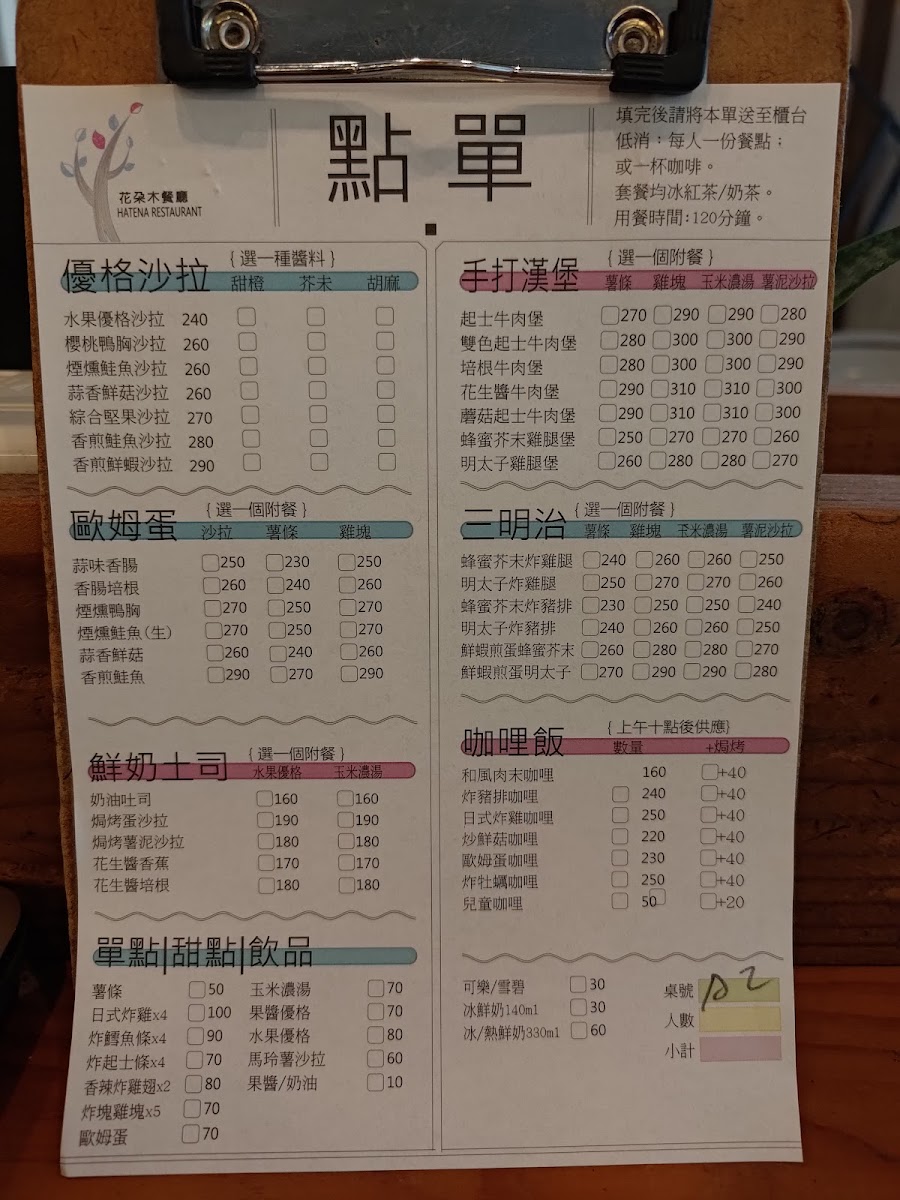 花朵木餐廳
HATENA RESTAURANT
點單
填完後請將本單送至櫃台
低消：每人一份餐點；
或一杯咖啡。
套餐均冰紅茶/奶茶。
用餐時間:120分鐘。
優格沙拉 {選一種醬料}
甜橙 芥未 胡麻
水果優格沙拉 240
櫻桃鴨胸沙拉 260
煙燻鮭魚沙拉 260
蒜香鮮菇沙拉 260
綜合堅果沙拉 270
香煎鮭魚沙拉 280
香煎鮮蝦沙拉 290
歐姆蛋 {選一個附餐}
沙拉 薯條 雞塊
蒜味香腸 250 230 250
香腸培根 260 240 260
煙燻鴨胸 270 250 270
煙燻鮭魚(生) 270 250 270
蒜香鮮菇 260 240 260
香煎鮭魚 290 270 290
鮮奶土司 {選一個附餐}
水果優格 玉米濃湯
奶油吐司 160 160
焗烤蛋沙拉 190 190
焗烤薯泥沙拉 180 180
花生醬香蕉 170 170
花生醬培根 180 180
單點|甜點|飲品
薯條 50 玉米濃湯 70
日式炸雞x4 100 果醬優格 70
炸鱈魚條x4 90 水果優格 80
炸起士條x4 70 馬玲薯沙拉 60
香辣炸雞翅x2 80 果醬/奶油 10
炸塊雞塊x5 70
歐姆蛋 70
手打漢堡 {選一個附餐}
薯條 雞塊 玉米濃湯 薯泥沙拉
起士牛肉堡 270 290 290 280
雙色起士牛肉堡 280 300 300 290
培根牛肉堡 280 300 300 290
花生醬牛肉堡 290 310 310 300
蘑菇起士牛肉堡 290 310 310 300
蜂蜜芥末雞腿堡 250 270 270 260
明太子雞腿堡 260 280 280 270
三明治 {選一個附餐}
薯條 雞塊 玉米濃湯 薯泥沙拉
蜂蜜芥末炸雞腿 240 260 260 250
明太子炸雞腿 250 270 270 260
蜂蜜芥末炸豬排 230 250 250 240
明太子炸豬排 240 260 260 250
鮮蝦煎蛋蜂蜜芥末 260 280 280 270
鮮蝦煎蛋明太子 270 290 290 280
咖哩飯 {上午十點後供應}
數量 +焗烤
和風肉末咖哩 160 +40
炸豬排咖哩 240 +40
日式炸雞咖哩 250 +40
炒鮮菇咖哩 220 +40
歐姆蛋咖哩 230 +40
炸牡蠣咖哩 250 +40
兒童咖哩 50 +20
可樂/雪碧 30
冰鮮奶140ml 30
冰/熱鮮奶330ml 60
桌號 A2
人數
小計